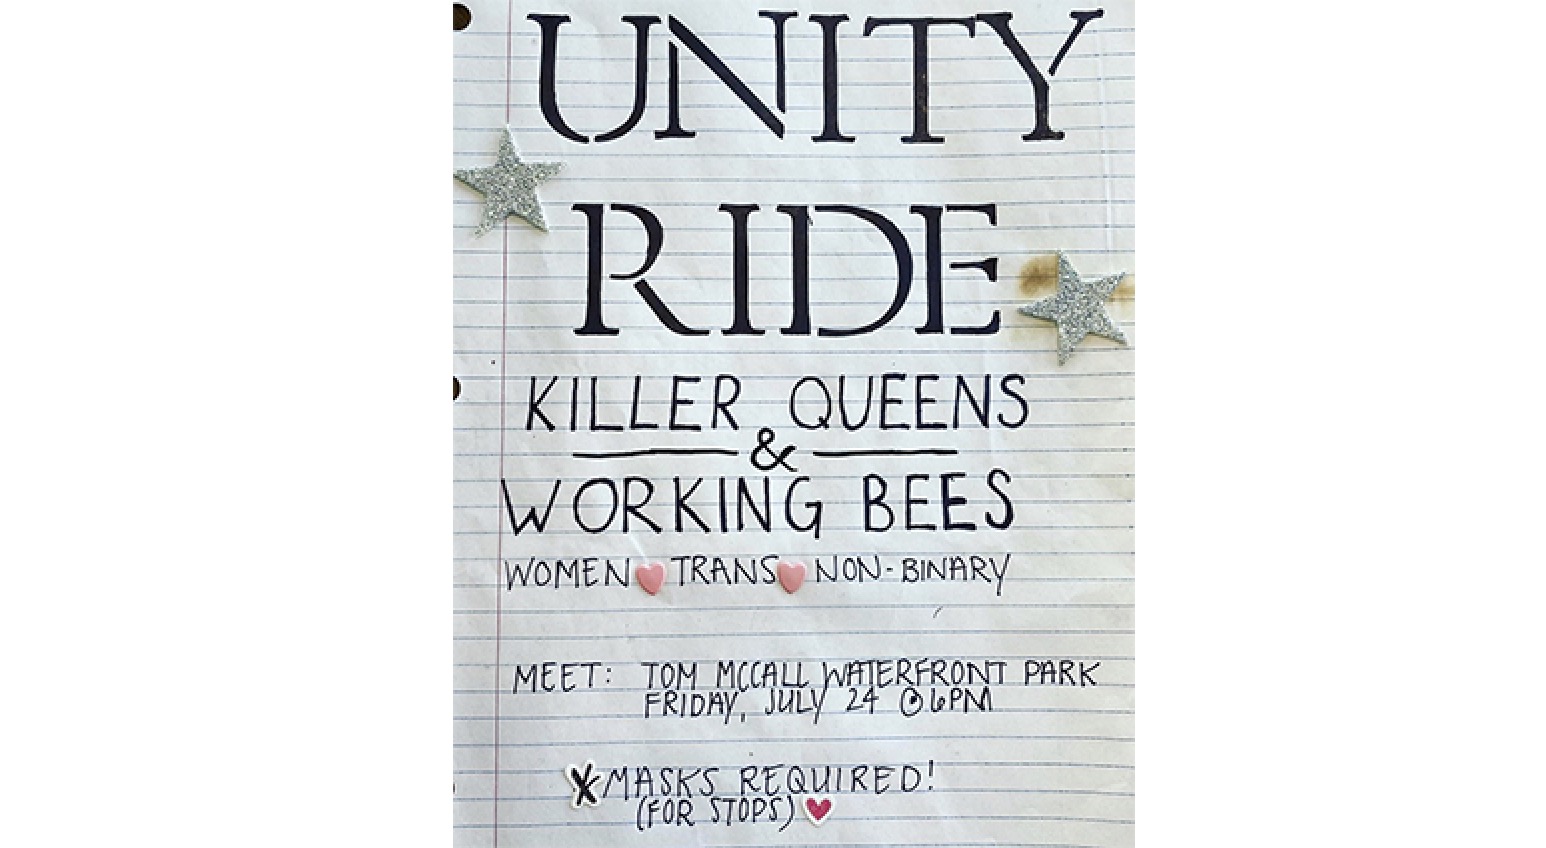 UNITY
RIDE
KILLER QUEENS
&
WORKING BEES
WOMEN TRANS NON-BINARY
MEET: TOM MCCALL WATERFRONT PARK
FRIDAY, JULY 24 @ 6PM
X MASKS REQUIRED!
(FOR STOPS)